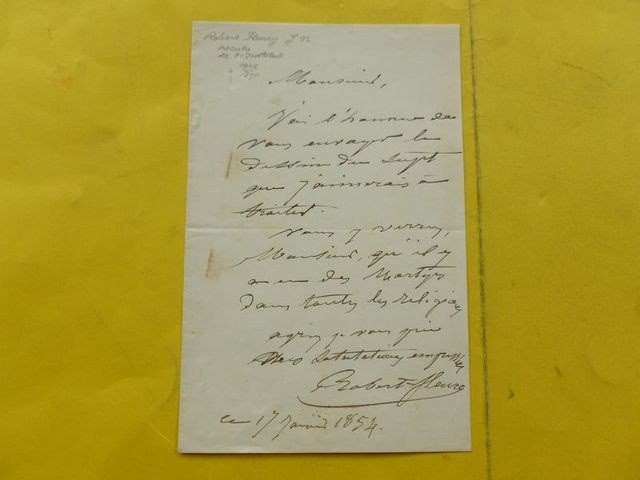 Robert Fleury J N
membre
de l'Institut
Monsieur,
J'ai l'honneur de
vous envoyer le
dessin du sujet
que j'aimerais à
traiter.
Vous y verrez,
Monsieur, qu'il y
a eu des Martyrs
dans toutes les religions
agréez je vous prie
mes salutations empressées
Robert-fleury
ce 17 janvier 1854.